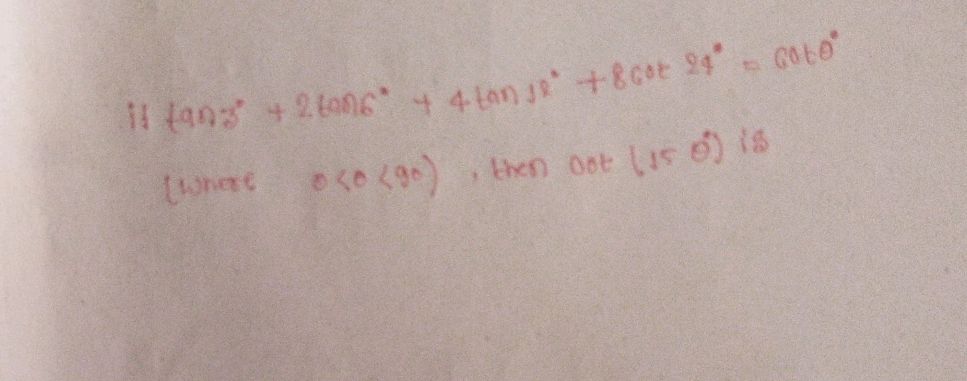 if tan3° + 2tan6° + 4tan12° + 8cot 24° = cotθ°
(where 0<θ<90), then cot (15 θ°) is